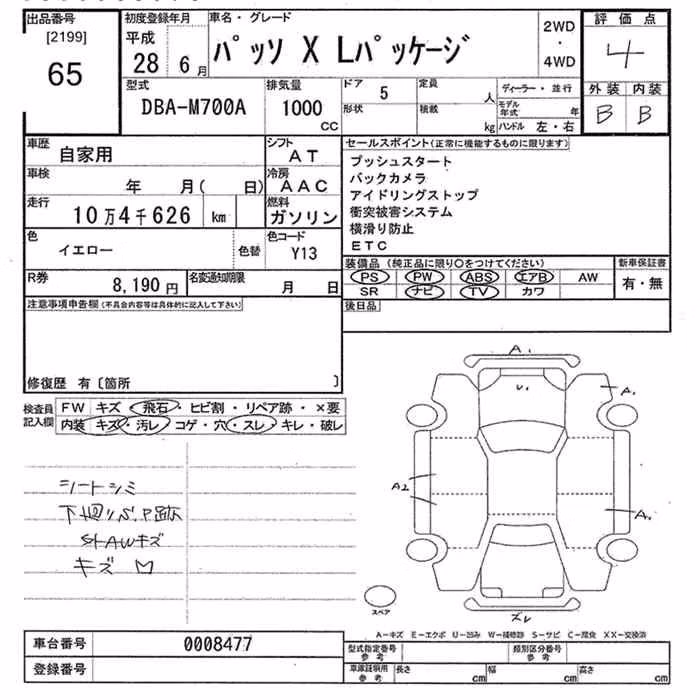 出品番号 初度登録年月 車名・グレード 2WD・4WD 評価点
[2199] 平成
65 28 6月 パッソ X Lパッケージ 4
型式 排気量 ドア 5 定員 人 ディーラー・並行 外装 内装
DBA-M700A 1000 CC 形状 積載 kg モデル年式 年 B B
ハンドル 左・右
車歴 自家用 シフト AT セールスポイント(正常に機能するものに限ります)
車検 年 月( 日) 冷房 AAC
走行 10万4千626 km 燃料 ガソリン
プッシュスタート
バックカメラ
アイドリングストップ
衝突被害システム
横滑り防止
ETC
色 イエロー 色替 色コード Y13
R券 8,190円 名変通知期限 月 日
装備品(純正品に限り○をつけてください) 新車保証書
PS PW ABS エアB AW 有・無
SR ナビ TV カワ
注意事項申告欄(不具合内容等は具体的に記入して下さい) 後日品
修復歴 有〔箇所 〕
検査員記入欄 FW キズ・飛石・ヒビ割・リペア跡・×要
内装 キズ・汚レ・コゲ・穴・スレ・キレ・破レ
シートシミ
下廻リ
キズ
A1
U1
A1
A2
A1
スレ
スペア
A-キズ E-エクボ U-凹み W-補修跡 S-サビ C-腐食 XX-交換済
車台番号 0008477 型式指定番号 参考 類別区分番号 参考
登録番号 車庫証明用 参考 長さ cm 幅 cm 高さ cm